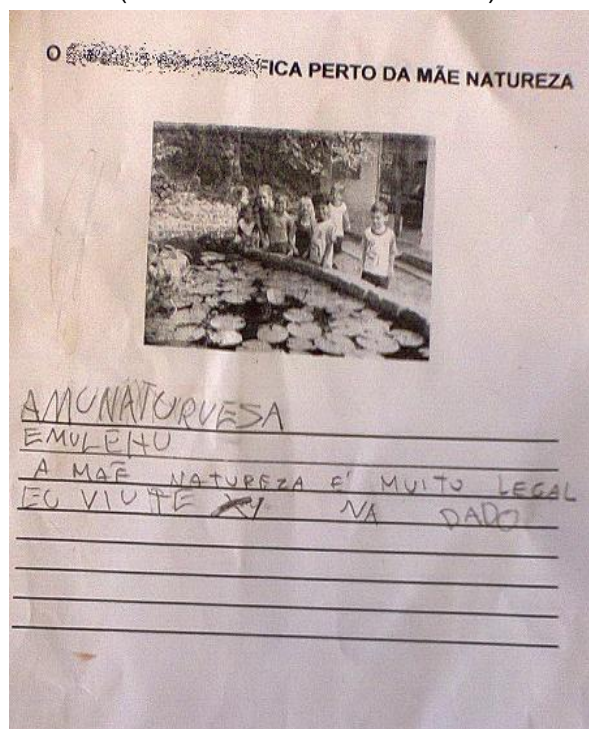 O FICA PERTO DA MÃE NATUREZA
AMUNATURVESA
EMULEHU
A MAE NATUREZA É MUITO LEGAL
EU VIU PE NA DADO